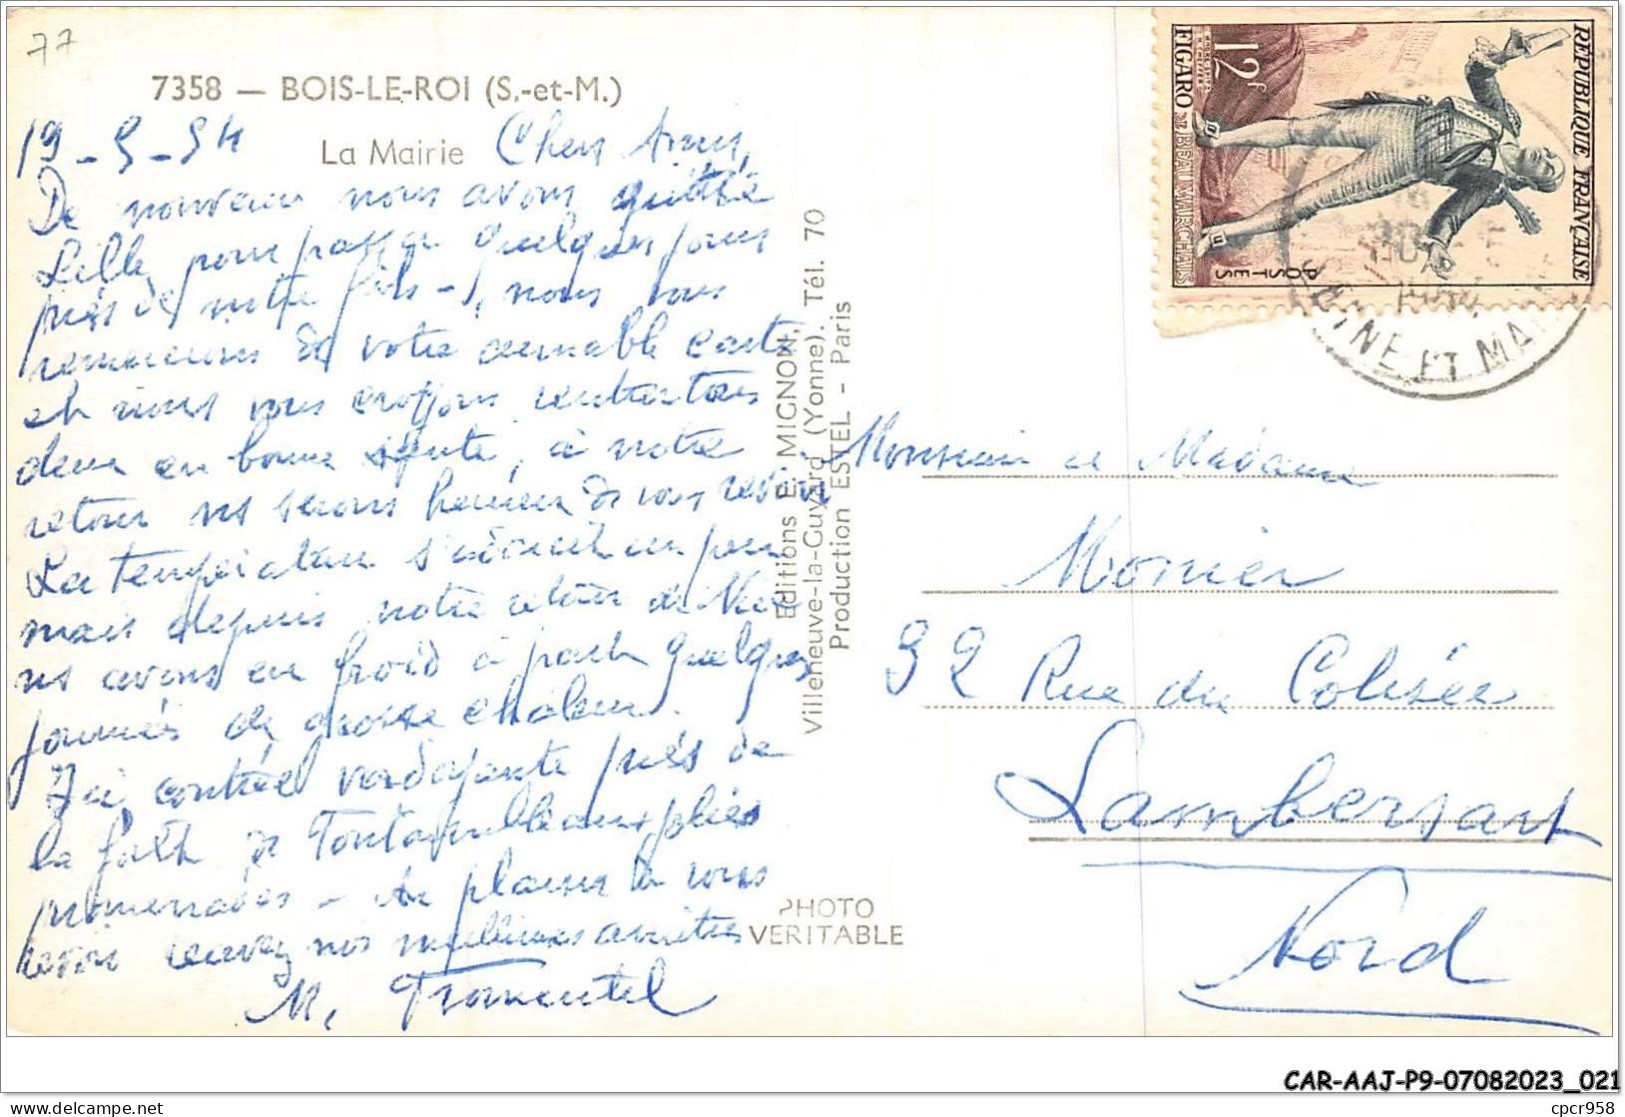 77
7358 — BOIS-LE-ROI (S.-et-M.)
La Mairie
19-5-54
Chers Amis,
De nouveau nous avons quitté
Lille pour passer quelques jours
près de notre fils -, nous vous
remercions de votre aimable carte
et nous vous croyons rentrer tous
deux en bonne santé, à notre
retour ns serons heureux de vous revoir
La température s'adoucit un peu
mais depuis notre retour de Nice
ns avons eu froid à part quelques
journées de grosse chaleur.
Ici, contrée verdoyante près de
la forêt de Fontainebleau, jolies
promenades - Au plaisir de vous
revoir recevez nos meilleures amitiés
M.
Editions E. MIGNON,
Villeneuve-la-Guyard (Yonne). Tél. 70
Production ESTEL - Paris
PHOTO
VERITABLE
REPUBLIQUE FRANÇAISE
12F
FIGARO DE BEAUMARCHAIS
POSTES
SEINE ET MA
Monsieur et Madame
Monier
92 Rue du Colisée
Lambersart
Nord
CAR-AAJ-P9-07082023_021
cpcr958